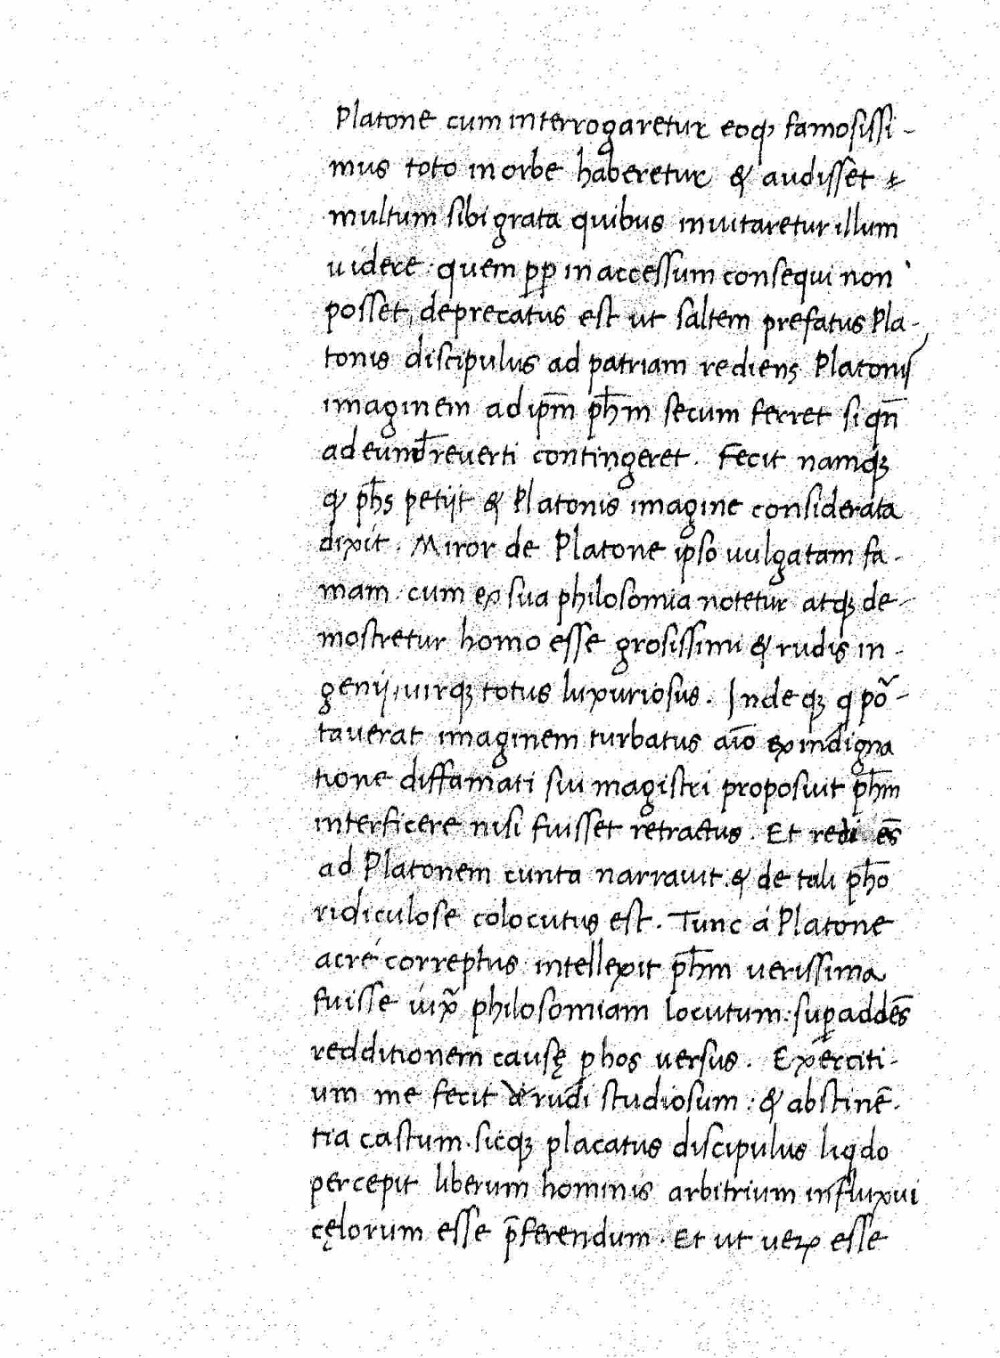 Platone cum interrogaretur eoq̨ famosissi-
mus toto in orbe haberetur & audisset
multum sibi grata quibus inuitaretur illum
uidere: quem ꝓp inaccessum consequi non
posset, deprecatus est ut saltem prefatus Pla-
tonis discipulus ad patriam rediens Platonis
imaginem ad ipm̄ ph̄m secum ferret si qn̄
ad eund̄ reuerti contingeret. Fecit namqꝫ
ꝙ ph̄s petijt & Platonis imagine considerata
dixit. Miror de Platone ipso uulgatam fa-
mam cum ex sua philosomia notetur atqꝫ de-
mostretur homo esse grosissimi & rudis in-
genij, uirqꝫ totus luxuriosus. Indeqꝫ q põ-
tauerat imaginem turbatus aīo ex indigna
tione diffamati sui magistri proposuit ph̄m
interficere nisi fuisset retractus. Et redi ēs
ad Platonem cunta narrauit & de tali ph̄o
ridiculose colocutus est. Tunc á Platone
acré correptus intellexit ph̄m uerissima
fuisse iux̃ philosomiam locutum: suꝑaddēs
redditionem causę phos uersus. Exerciti-
um me fecit de rudi studiosum: & abstinē-
tia castum. sicqꝫ placatus discipulus liqdo
percepit liberum hominis arbitrium influxui
cęlorum esse p̄ferendum. Et ut ueꝝ esse